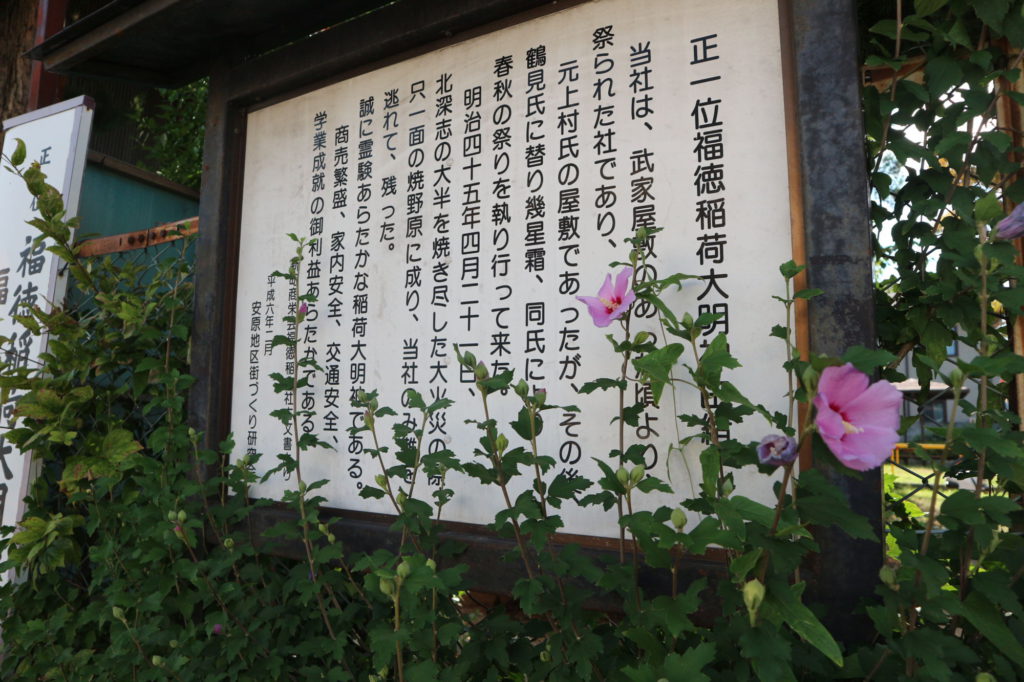 正一位福徳稲荷大明
当社は、武家屋敷のあった頃より
祭られた社であり、
元上村氏の屋敷であったが、その後
鶴見氏に替り幾星霜、同氏によ
春秋の祭りを執り行って来た。
明治四十五年四月二十一日、
北深志の大半を焼き尽した大火災の際
只一面の焼野原に成り、当社のみ難
逃れて、残った。
誠に霊験あらたかな稲荷大明神である。
商売繁盛、家内安全、交通安全、
学業成就の御利益あらたかである
商栄会福徳稲社文書
平成六年二月
安原地区街づくり研究
正
福徳稲荷大明
福